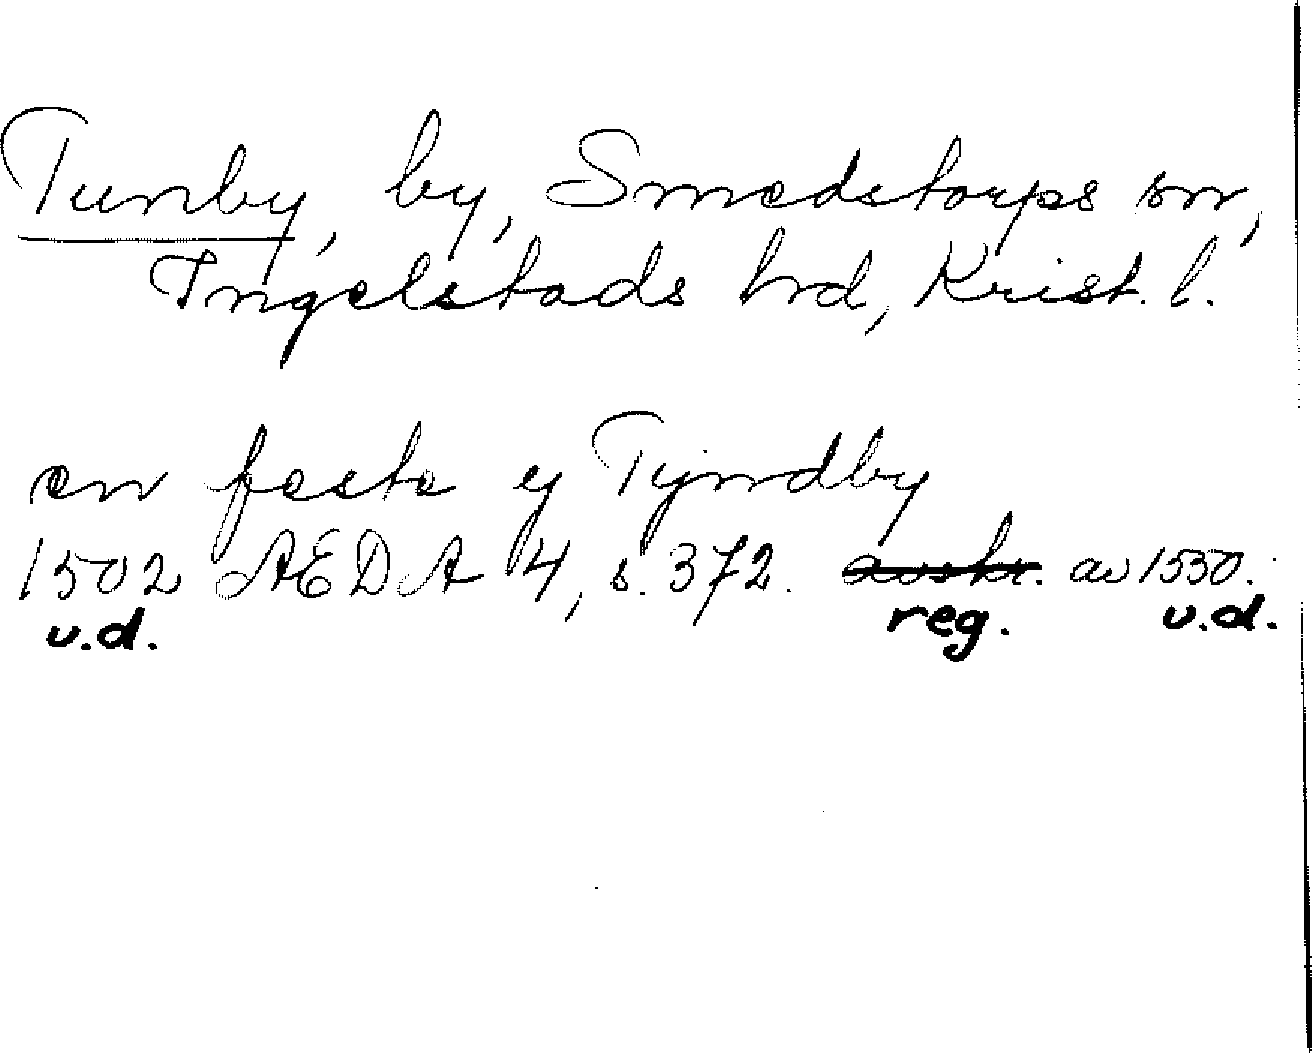 Tunby, by, Smedstorps sn,
Ingelstads hrd, Krist. l.
en feste y Tyndby
1502 ÆDA 4, s. 372. avskr. av 1550.
u.d. reg. u.d.